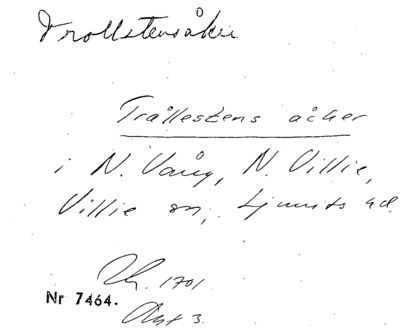 Trollstensåker
Trållestens acker
i N. Vång, N. Villie,
Villie sn, Ljunits hd.
1701
Nr 7464.
Akt 3.